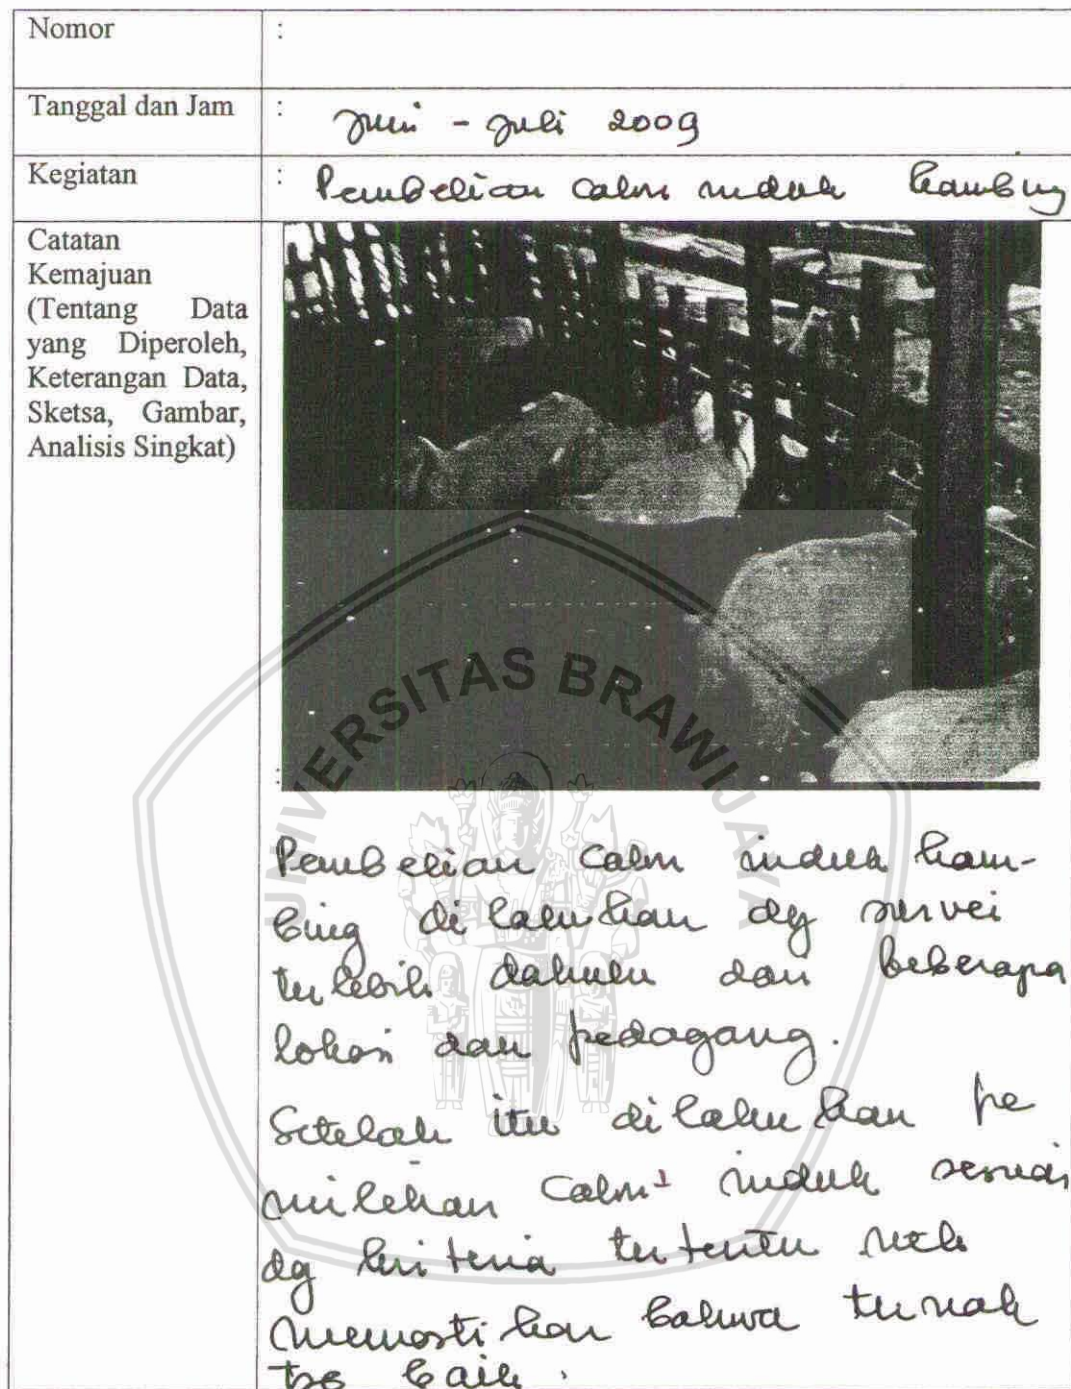 Nomor :
Tanggal dan Jam : Juni - Juli 2009
Kegiatan : Pembelian calon induk kambing
Catatan
Kemajuan
(Tentang Data
yang Diperoleh,
Keterangan Data,
Sketsa, Gambar,
Analisis Singkat)
:
UNIVERSITAS BRAWIJAYA
Pembelian calon induk kam-
bing dilakukan dg survei
terlebih dahulu dari beberapa
lokasi dan pedagang.
Setelah itu dilakukan pe
milihan calon² induk sesuai
dg kriteria tertentu utk
memastikan bahwa ternak
tsb baik.